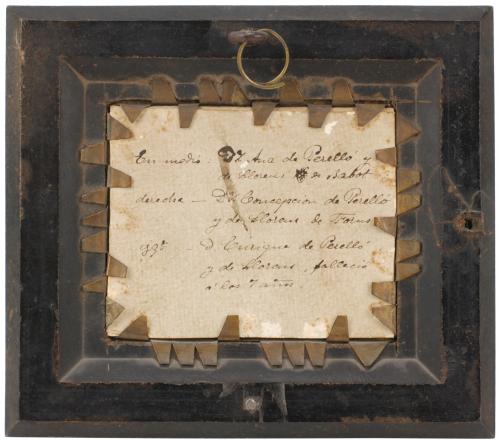 En medio D.ª Ana de Perelló y
de Llorens de Sabot
derecha — D.ª Concepcion de Perelló
y de Llorens de Forns
izq.ª — D. Enrique de Perelló
y de Llorens, fallecio
á los 7 años.